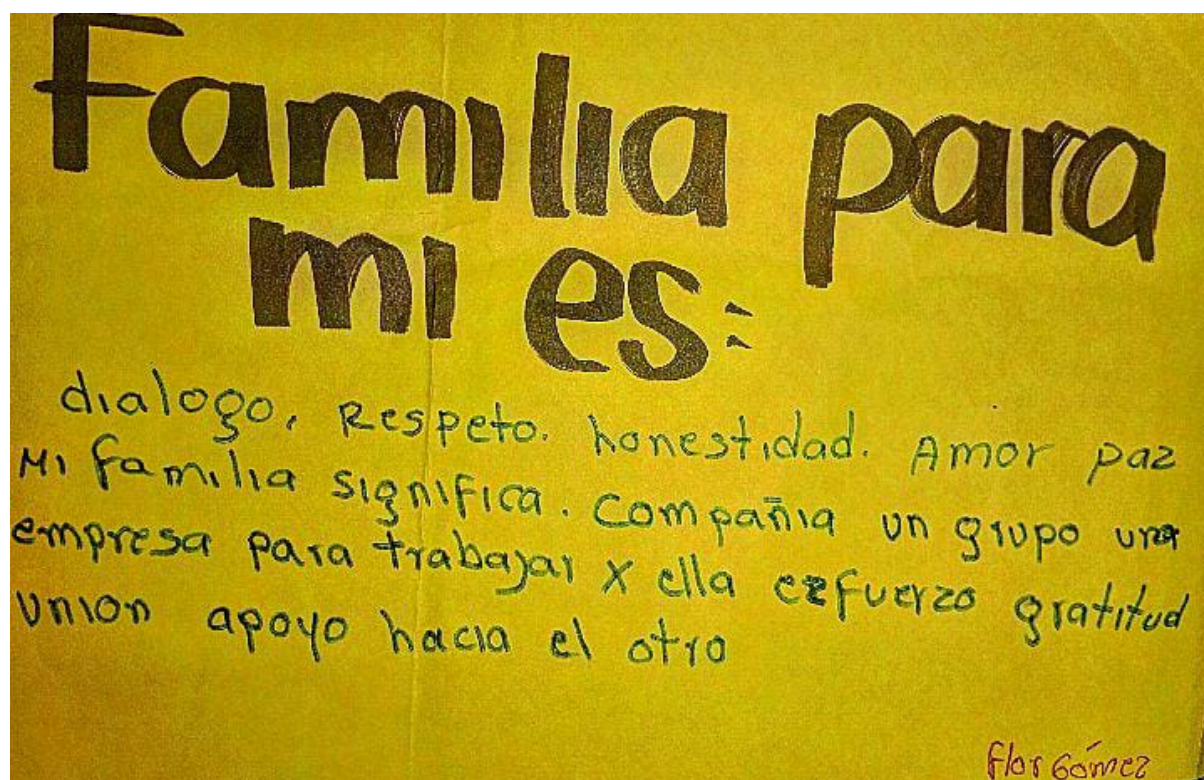 Familia para
mi es:
dialogo, Respeto. honestidad. Amor paz
Mi familia significa. Compañia un grupo una
empresa para trabajar x ella ezfuerzo gratitud
union apoyo hacia el otro
flor Gómez